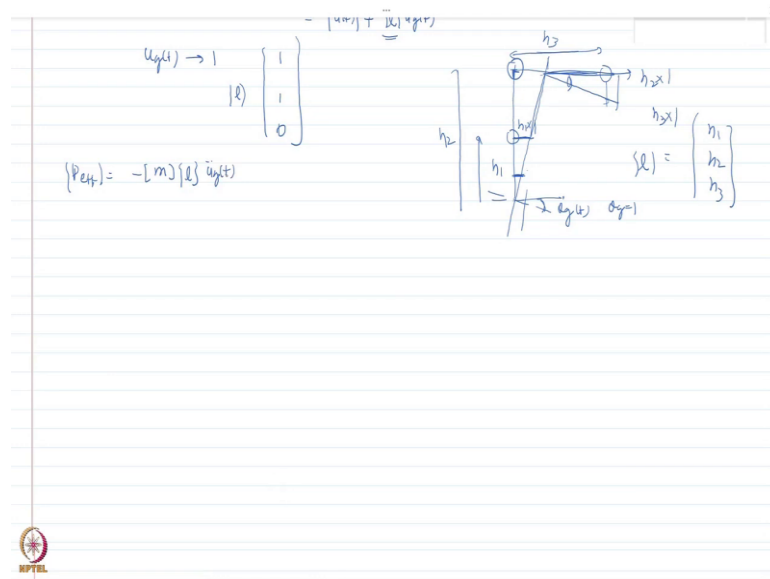 u_g(t) → 1
{l} { 1
1
0 }
{P_eff} = -[m]{l} ü_g(t)
h_3
h_2×1
h_3×1
h_1×1
h_2
h_1
θ
θ_g(t) θ_g=1
{l} = { h_1
h_2
h_3 }
NPTEL